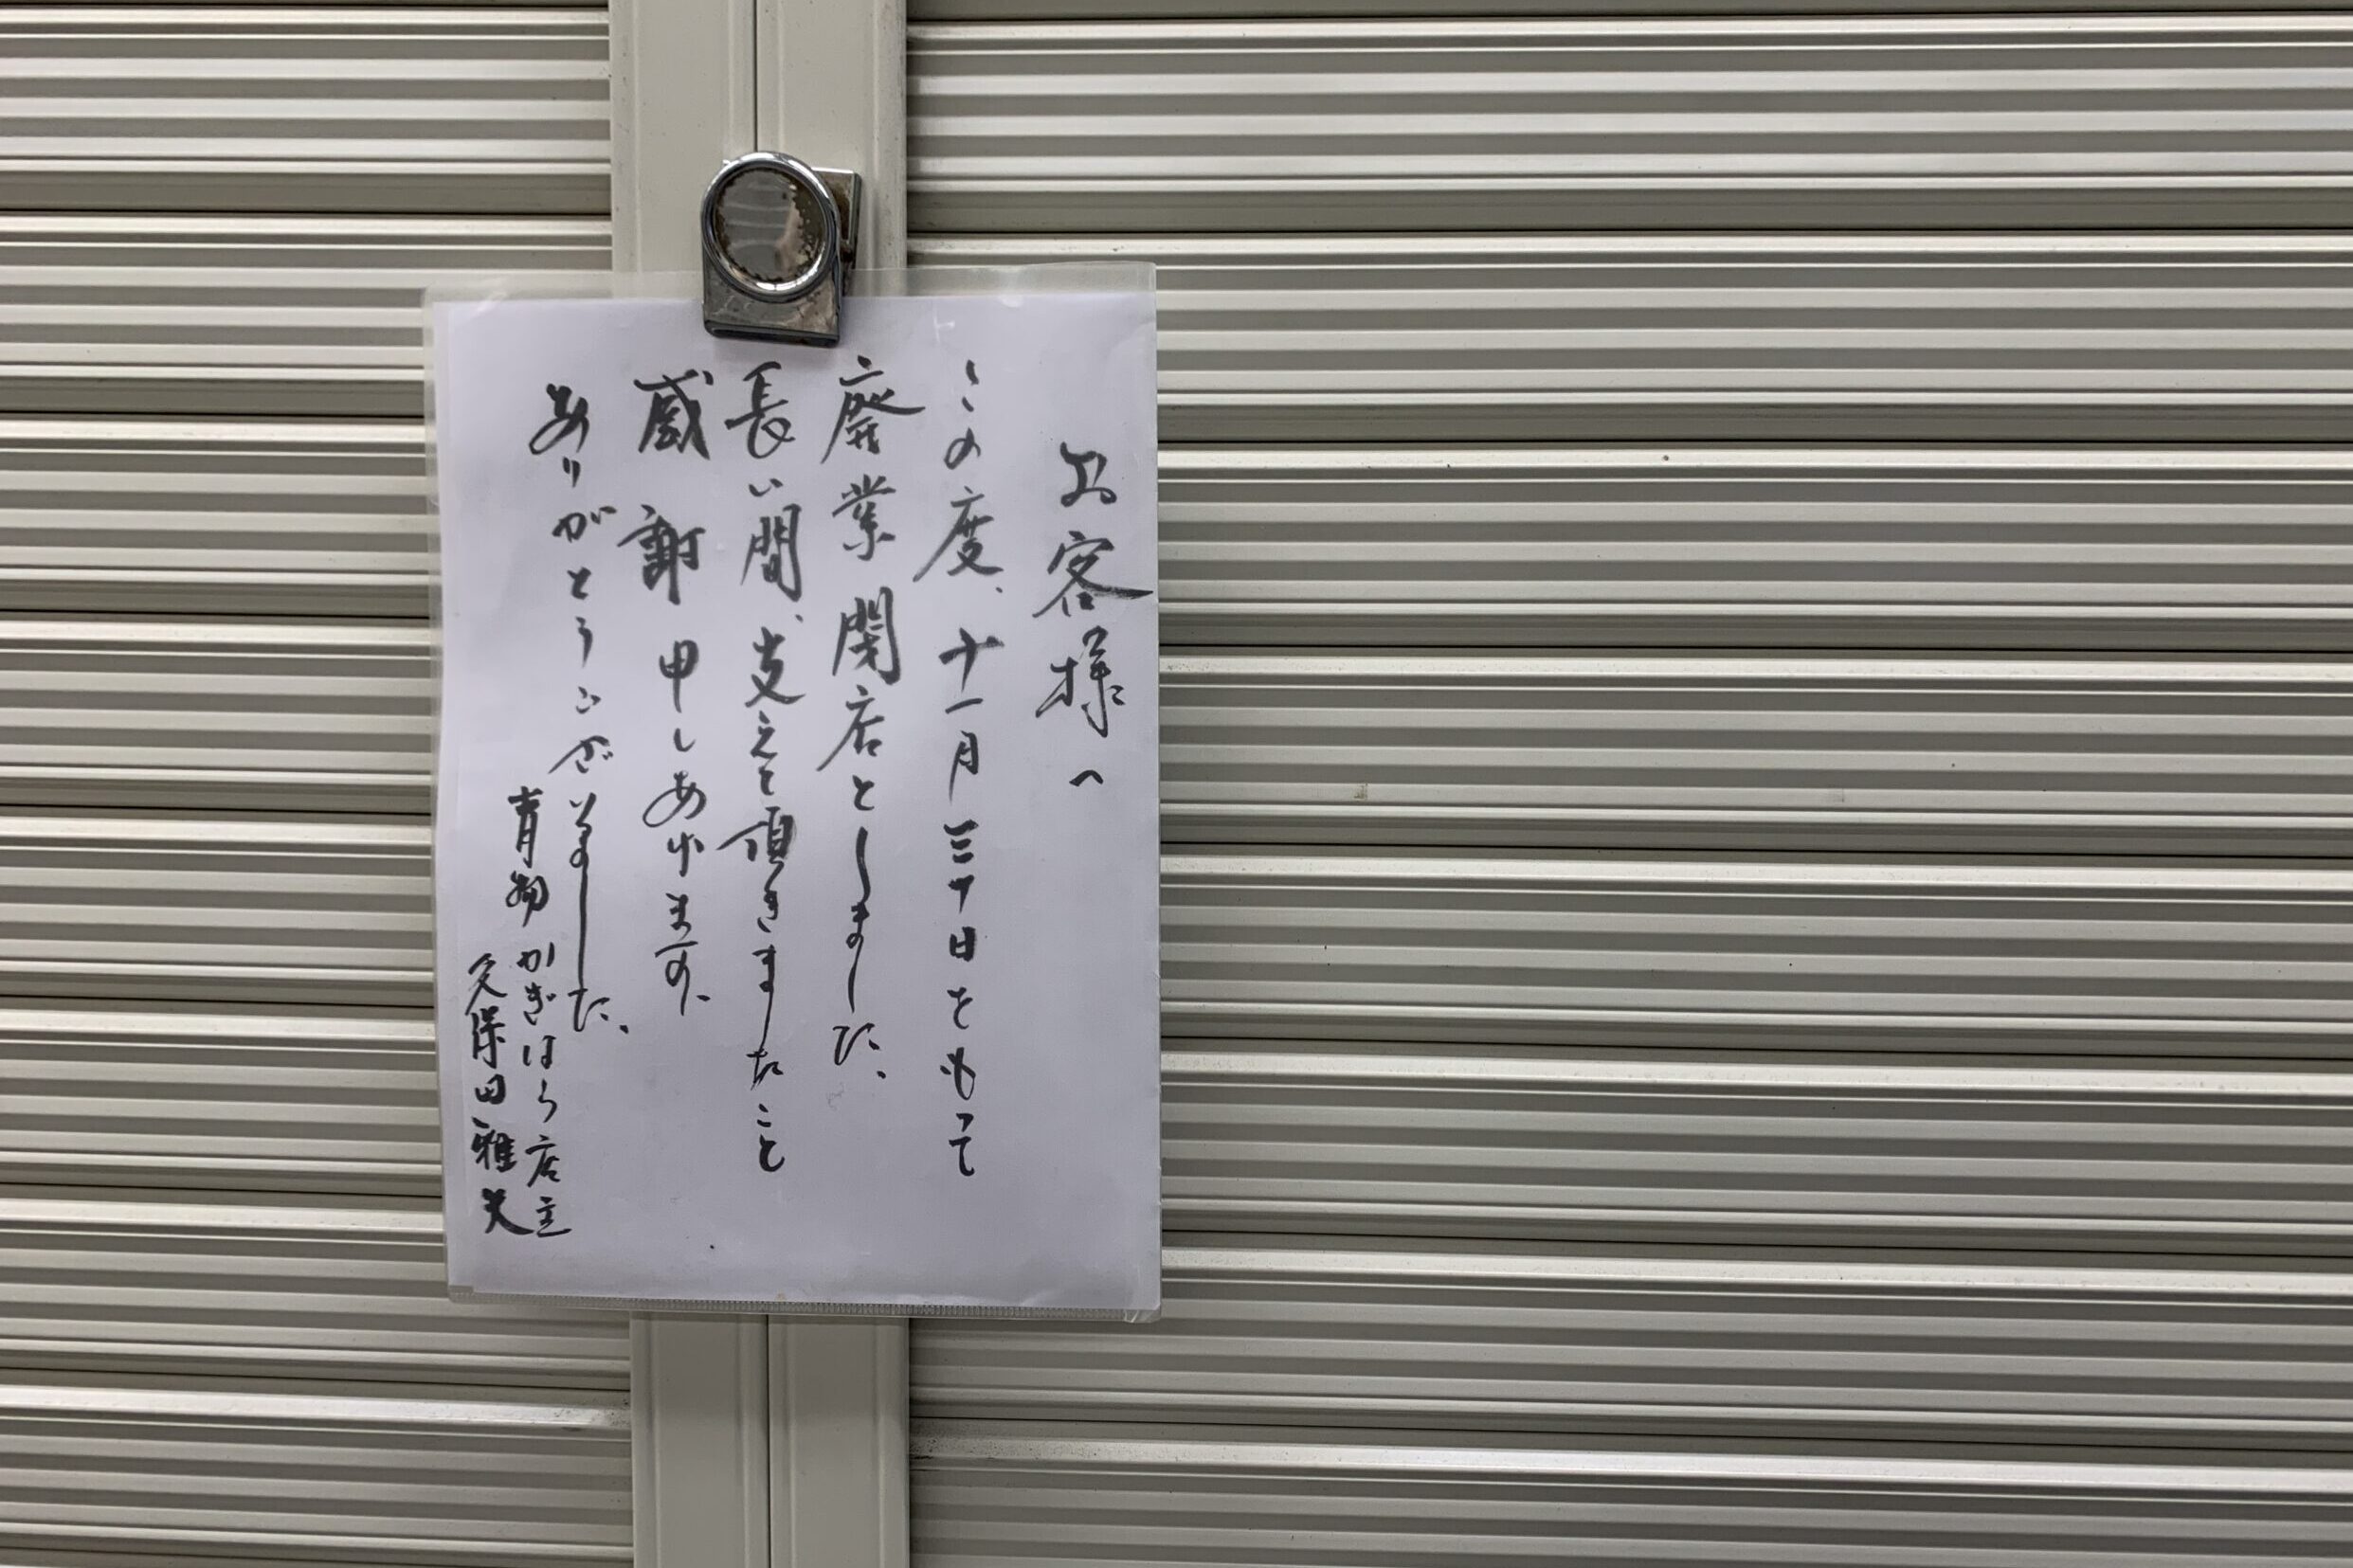 お客様へ
この度、十一月三十日をもって
廃業閉店としました、
長い間、支えて頂きましたこと
感謝申しあげます、
ありがとうございました、
青物かぎはら店主
久保田雅夫